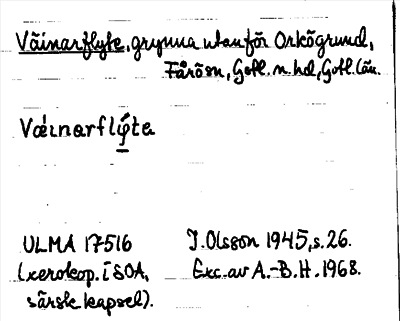 Väinarflyte, grynna utanför Orkögrund,
Fårösn, Gotl. n. hd, Gotl. län.
Væinarflý̄te
ULMA 17516
(xerokop. i SOA,
särsk. kapsel).
I. Olsson 1945, s. 26.
Exc. av A.-B. H. 1968.